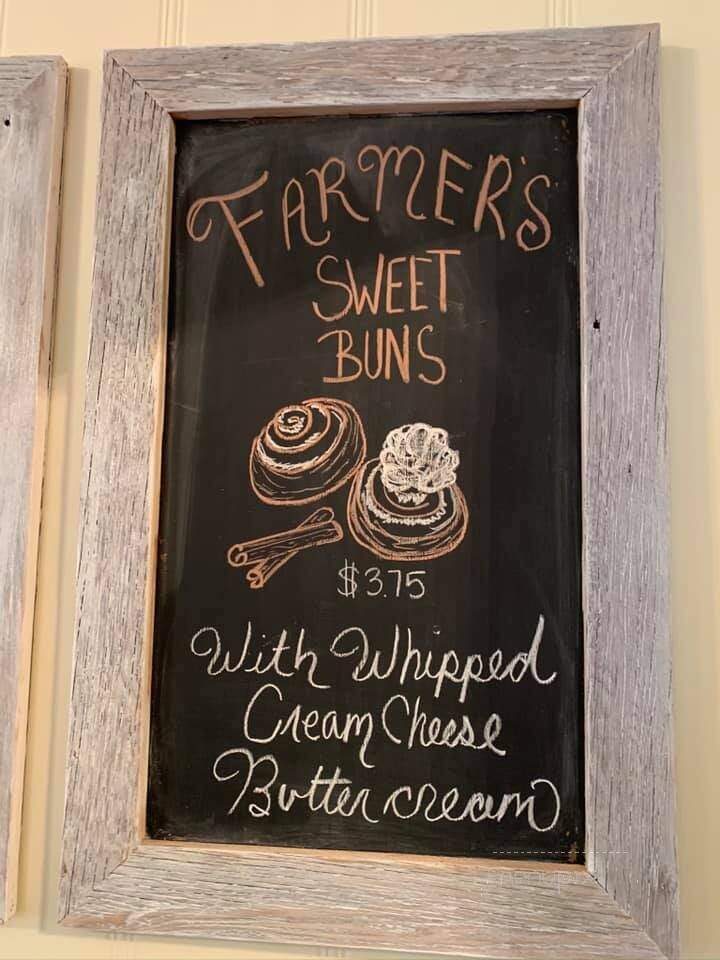 FARMER'S
SWEET
BUNS
$3.75
With Whipped
Cream Cheese
Butter cream